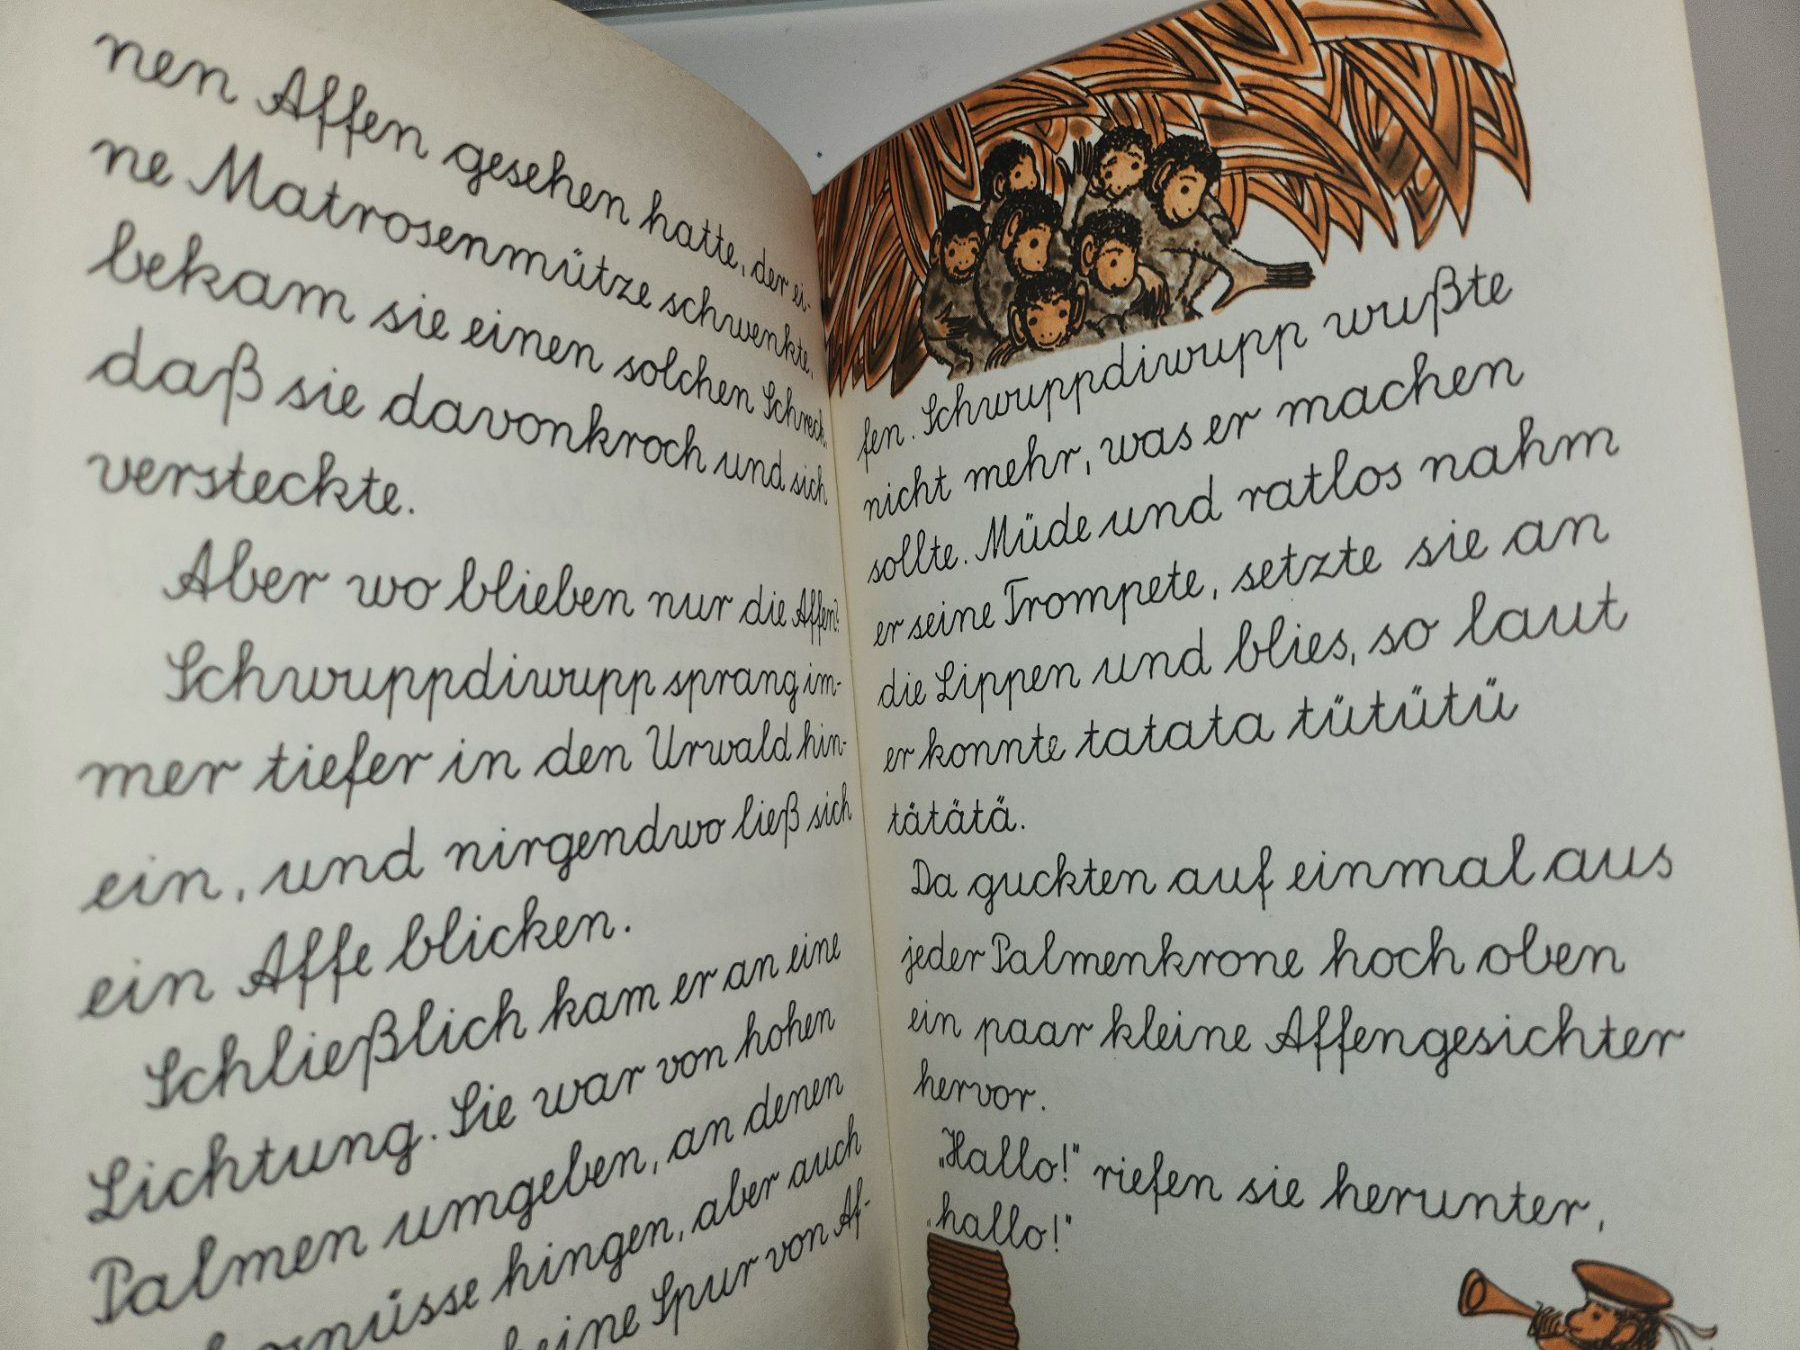 nen Affen gesehen hatte, der ei-
ne Matrosenmütze schwenkte,
bekam sie einen solchen Schreck,
daß sie davonkroch und sich
versteckte.
Aber wo blieben nur die Affen?
Schwuppdiwupp sprang im-
mer tiefer in den Urwald hin-
ein, und nirgendwo ließ sich
ein Affe blicken.
Schließlich kam er an eine
Lichtung. Sie war von hohen
Palmen umgeben, an denen
hingen, aber auch
keine Spur von Af-
fen. Schwuppdiwupp wußte
nicht mehr, was er machen
sollte. Müde und ratlos nahm
er seine Trompete, setzte sie an
die Lippen und blies, so laut
er konnte tatata tütütü
tätätä.
Da guckten auf einmal aus
jeder Palmenkrone hoch oben
ein paar kleine Affengesichter
hervor.
„Hallo!" riefen sie herunter,
„hallo!"